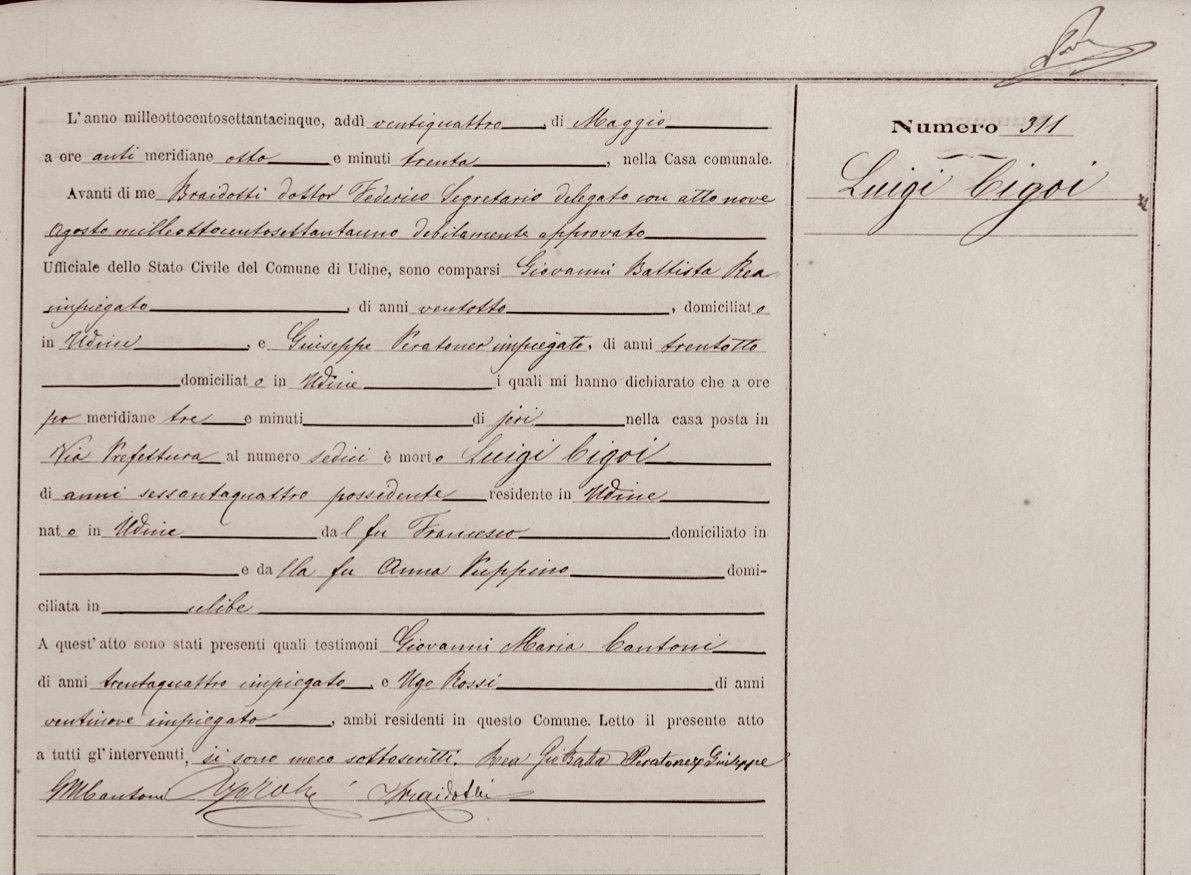 L'anno milleottocentosettantacinque, addì ventiquattro, di Maggio
a ore anti meridiane otto e minuti trenta, nella Casa comunale.
Avanti di me Braidotti dottor Federico Segretario delegato con atto nove
Agosto milleottocentosettantauno debitamente approvato
Ufficiale dello Stato Civile del Comune di Udine, sono comparsi Giovanni Battista Rea
impiegato, di anni ventotto, domiciliato
in Udine, e Giuseppe Peratoner impiegato, di anni trentotto
domiciliato in Udine i quali mi hanno dichiarato che a ore
po meridiane tre e minuti di jeri nella casa posta in
Via Prefettura al numero sedici è morto Luigi Cigoi
di anni sessantaquattro possidente residente in Udine
nato in Udine dal fu Francesco domiciliato in
e dalla fu Anna Puppino domi-
ciliata in celibe
A quest'atto sono stati presenti quali testimoni Giovanni Maria Cantoni
di anni trentaquattro impiegato, e Ugo Rossi di anni
ventinove impiegato, ambi residenti in questo Comune. Letto il presente atto
a tutti gl'intervenuti, si sono meco sottoscritti. Rea Gio Batta Peratoner Giuseppe
GMCantoni Braidotti
Numero 311
Luigi Cigoi